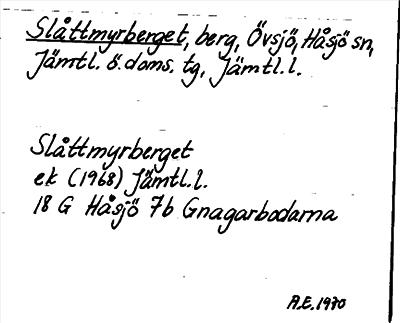 Slåttmyrberget, berg, Övsjö, Håsjö sn,
Jämtl. ö. doms. tg, Jämtl.l.
Slåttmyrberget
ek (1968) Jämtl.l.
18 G Håsjö 7b Gnagarbodarna
A.E. 1970